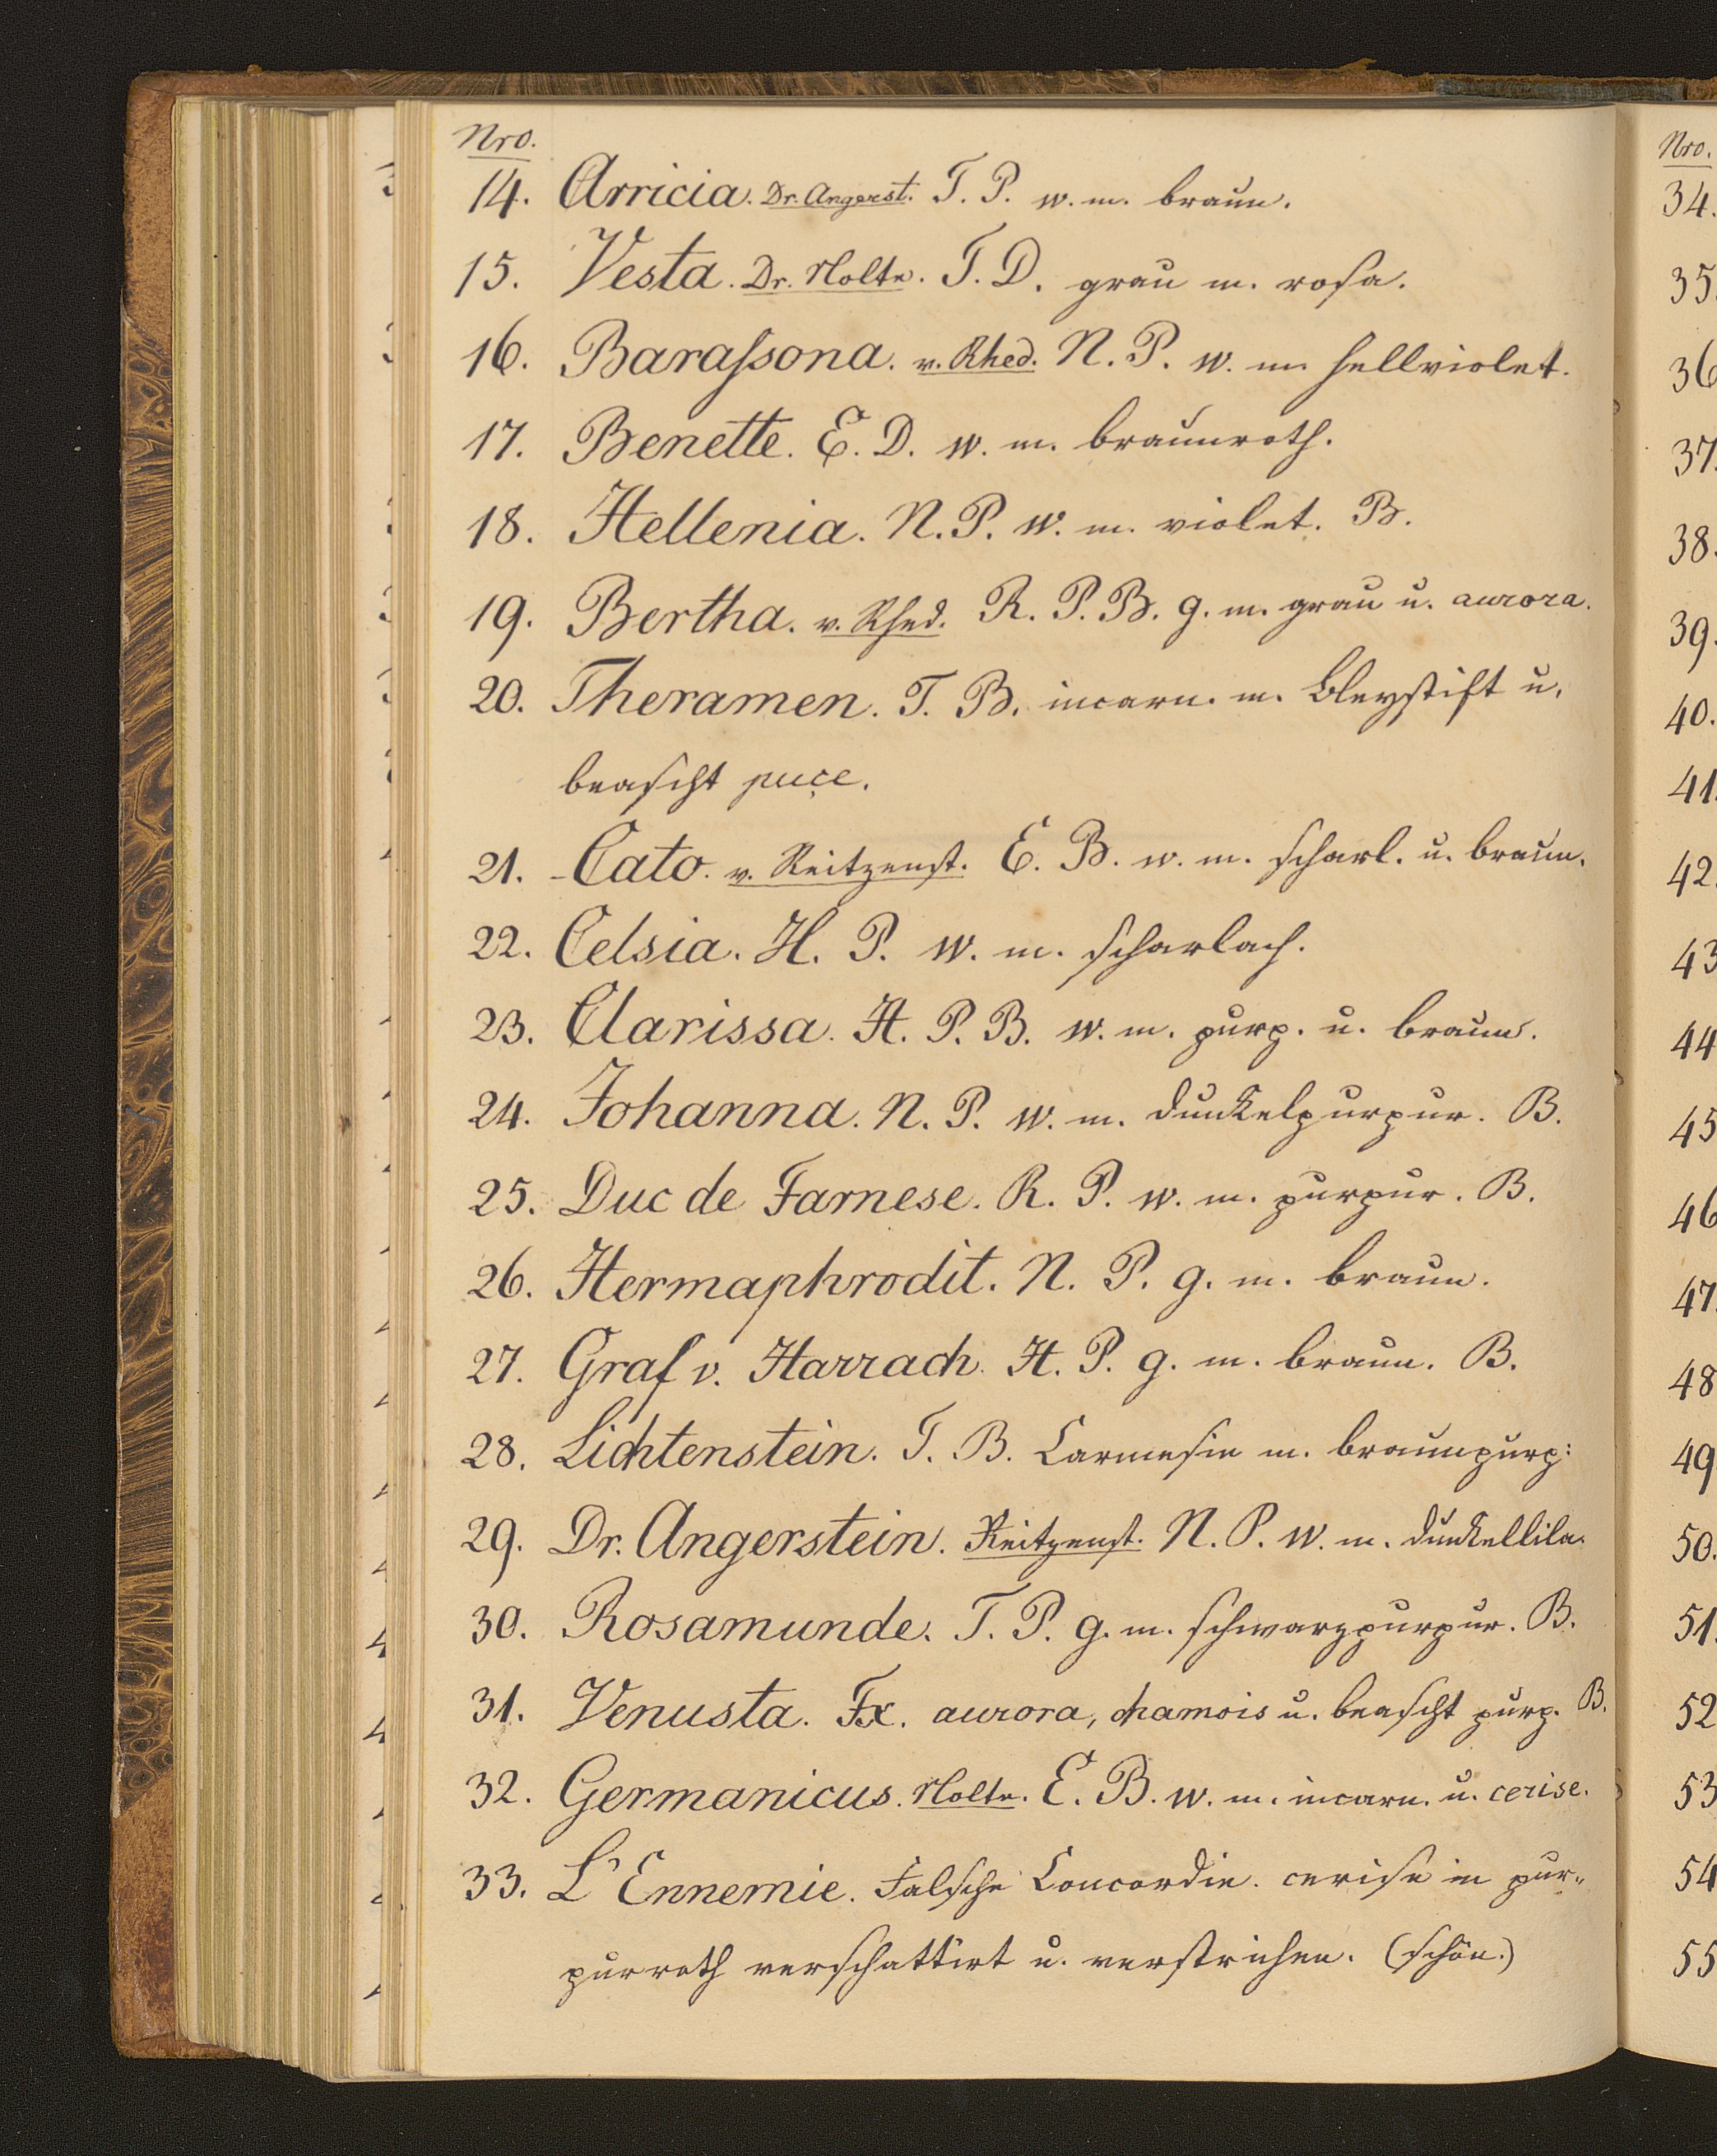 Nro.
14. Arricia. Dr. Angerst. T. P. w. m. braun.
15. Vesta. Dr. Nolte. T. D. grau m. rosa.
16. Baraſsona. v. Rhed. N. P. w. m. hellviolet.
17. Benette. E. D. w. m. braunroth.
18. Hellenia. N. P. w. m. violet. B.
19. Bertha. v. Rhed. R. P. B. g. m. grau u. aurora.
20. Theramen. T. B. incarn. m. Bleystift u.
beascht puce.
21. Cato. v. Reitzenst. E. B. w. m. scharl. u. braun.
22. Celsia. H. P. w. m. scharlach.
23. Clarissa. H. P. B. w. m. purp. u. braun.
24. Johanna. N. P. w. m. dunkelpurpur. B.
25. Duc de Farnese. R. P. w. m. purpur. B.
26. Hermaphrodit. N. P. g. m. braun.
27. Graf v. Harrach. H. P. g. m. braun. B.
28. Lichtenstein. T. B. Carmesin m. braunpurp:
29. Dr. Angerstein. Reitzenst. N. P. w. m. dunkellila.
30. Rosamunde. T. P. g. m. schwarzpurpur. B.
31. Venusta. Fx. aurora, chamois u. beascht purp. B.
32. Germanicus. Nolte. E. B. w. m. incarn. u. cerise.
33. L'Ennemie. Falsche Concordie. cerise in pur„
purroth verschattirt u. verstrichen. (schön.)
Nro.
34.
35.
36
37.
38.
39.
40.
41.
42.
43
44
45
46
47.
48
49
50.
51.
52
53
54
55